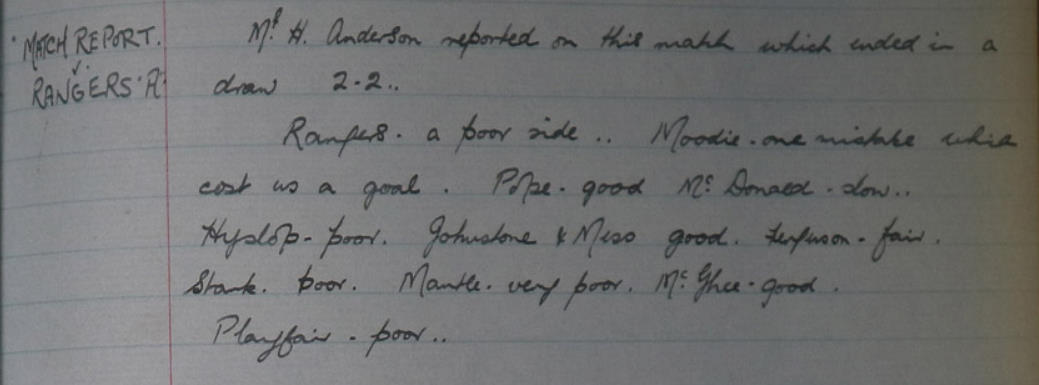 MATCH REPORT.
v.
RANGERS 'A'
Mr H. Anderson reported on this match which ended in a
draw 2-2..
Rangers. a poor side .. Moodie. one mistake which
cost us a goal. Pope. good Mc Donald. slow..
Hyslop- poor. Johnstone & Miso good. Ferguson- fair.
Stark. poor. Mantle. very poor. Mc Ghee. good.
Playfair - poor..